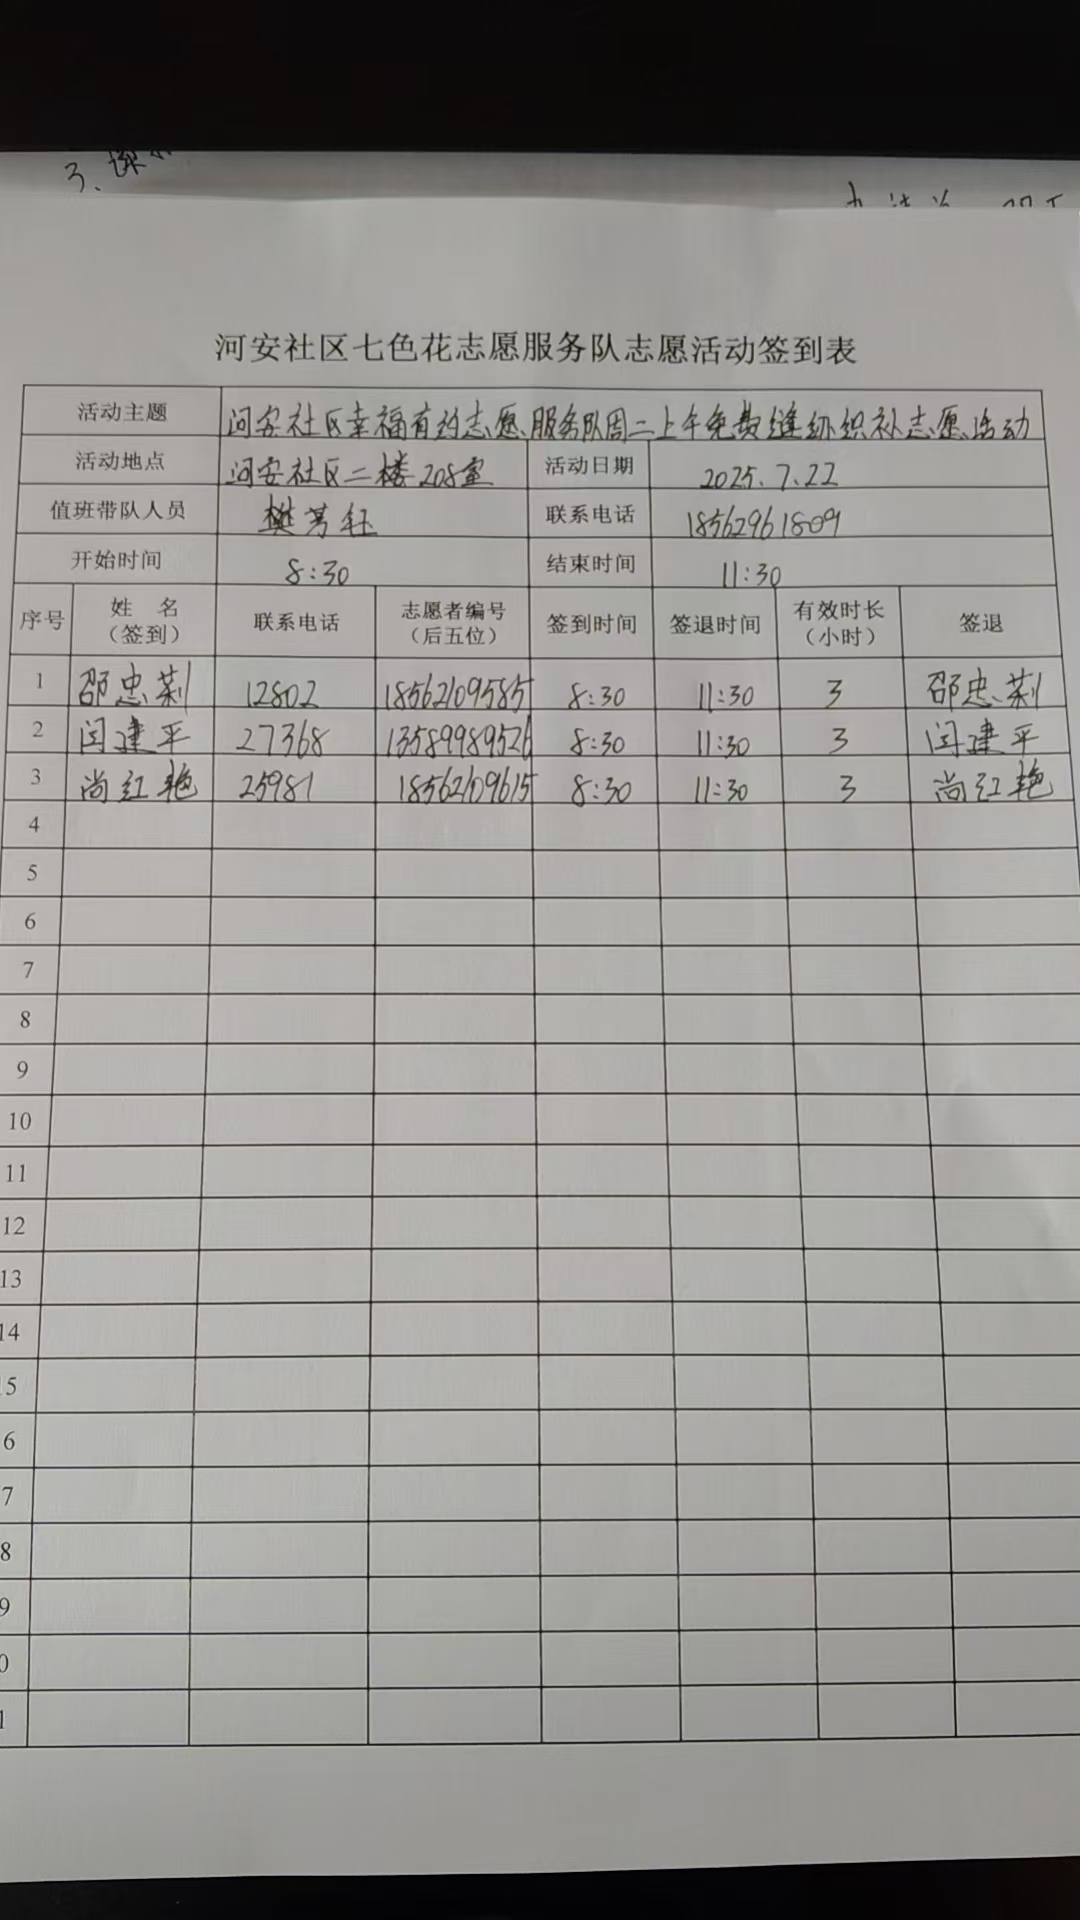 3、课
河安社区七色花志愿服务队志愿活动签到表
活动主题 河安社区幸福有约志愿服务队周二上午免费缝纫织补志愿活动
活动地点 河安社区二楼208室 活动日期 2025.7.22
值班带队人员 樊芳钰 联系电话 18562961809
开始时间 8:30 结束时间 11:30
序号 姓 名（签到） 联系电话 志愿者编号（后五位） 签到时间 签退时间 有效时长（小时） 签退
1 邵忠菊 12802 18562109585 8:30 11:30 3 邵忠菊
2 闫建平 27368 13589989526 8:30 11:30 3 闫建平
3 尚红艳 25981 18562109615 8:30 11:30 3 尚红艳
4
5
6
7
8
9
10
11
12
13
14
5
6
7
8
9
0
1